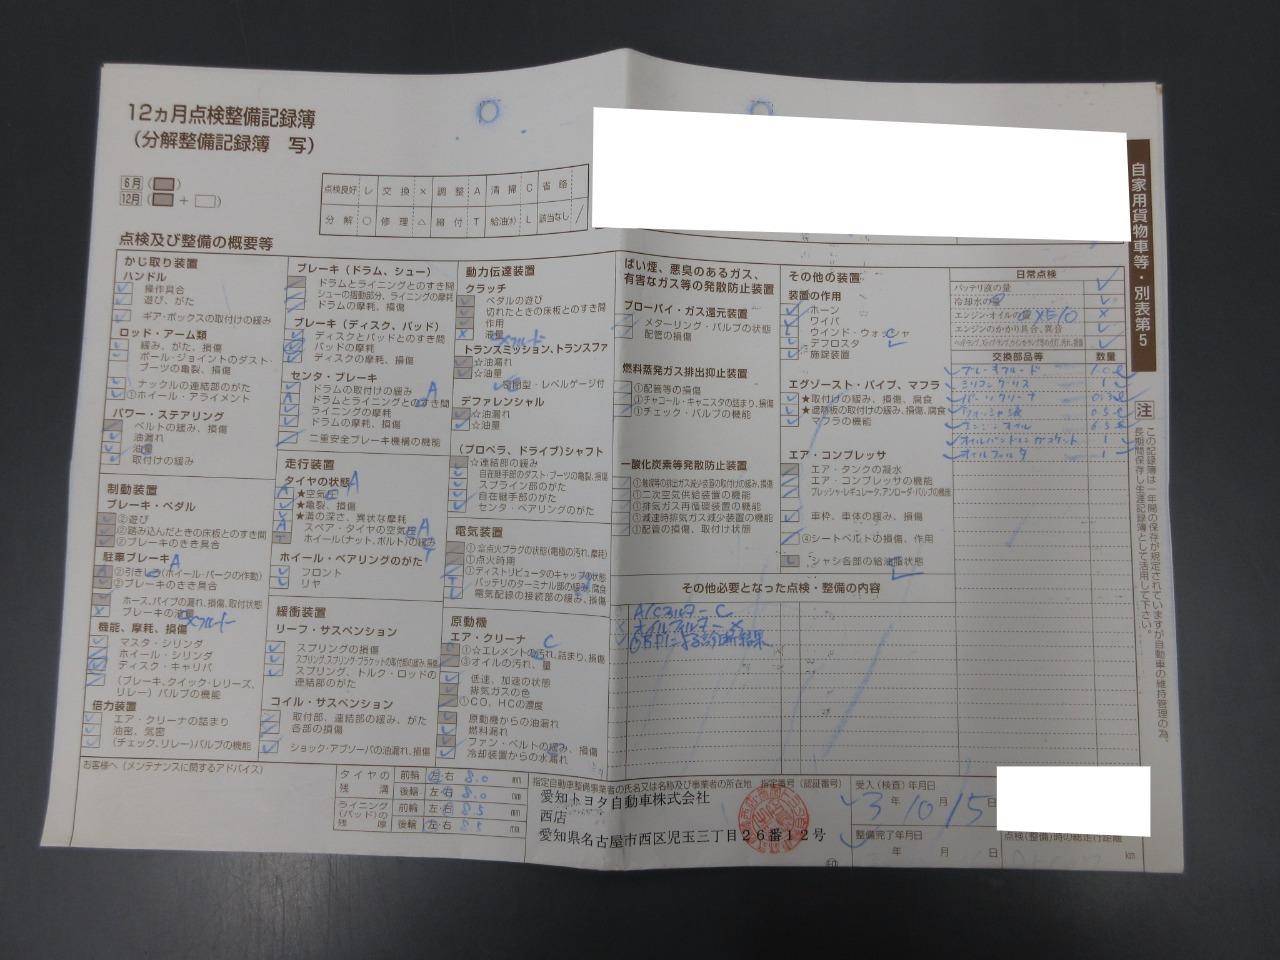 12ヵ月点検整備記録簿
(分解整備記録簿 写)
6月
12月 +
点検良好 レ 交換 × 調整 A 清掃 C 省略
分解 ○ 修理 △ 締付 T 給油(水) L 該当なし /
自家用貨物車等・別表第5
点検及び整備の概要等
かじ取り装置
ハンドル
操作具合
遊び、がた
ギア・ボックスの取付けの緩み
ロッド・アーム類
緩み、がた、損傷
ボール・ジョイントのダスト・
ブーツの亀裂、損傷
ナックルの連結部のがた
①ホイール・アライメント
パワー・ステアリング
ベルトの緩み、損傷
油漏れ
油量
取付けの緩み
制動装置
ブレーキ・ペダル
②遊び
②踏み込んだときの床板とのすき間
②ブレーキのきき具合
駐車ブレーキ A
②引きしろ(ホイール・パークの作動)
②ブレーキのきき具合
ホース、パイプの漏れ、損傷、取付状態
ブレーキの液量
機能、摩耗、損傷
マスタ・シリンダ
ホイール・シリンダ
ディスク・キャリパ
(ブレーキ、クイック・レリーズ、
リレー)バルブの機能
倍力装置
エア・クリーナの詰まり
油密、気密
(チェック、リレー)バルブの機能
ブレーキ(ドラム、シュー)
ドラムとライニングとのすき間
シューの摺動部分、ライニングの摩耗
ドラムの摩耗、損傷
ブレーキ(ディスク、パッド)
ディスクとパッドとのすき間
パッドの摩耗
ディスクの摩耗、損傷
センタ・ブレーキ
ドラムの取付けの緩み A
ドラムとライニングとのすき間
ライニングの摩耗
ドラムの摩耗、損傷
二重安全ブレーキ機構の機能
走行装置
タイヤの状態 A
★空気圧
★亀裂、損傷
★溝の深さ、異状な摩耗
スペア・タイヤの空気圧 A
ホイール(ナット、ボルト)の緩み T
ホイール・ベアリングのがた
フロント
リヤ
緩衝装置
リーフ・サスペンション
スプリングの損傷
スプリング、スプリング・ブラケットの取付部の緩み、損傷
スプリング、トルク・ロッドの
連結部のがた
コイル・サスペンション
取付部、連結部の緩み、がた
各部の損傷
ショック・アブソーバの油漏れ、損傷
動力伝達装置
クラッチ
ペダルの遊び
切れたときの床板とのすき間
作用
液量
トランスミッション、トランスファ
☆油漏れ
☆油量
密閉型・レベルゲージ付
デファレンシャル
☆油漏れ
☆油量
(プロペラ、ドライブ)シャフト
☆連結部の緩み
自在継手部のダスト・ブーツの亀裂、損傷
スプライン部のがた
自在継手部のがた
センタ・ベアリングのがた
電気装置
①☆点火プラグの状態(電極の汚れ、摩耗)
①点火時期
①ディストリビュータのキャップの状態
バッテリのターミナル部の緩み、腐食
電気配線の接続部の緩み、損傷
原動機
エア・クリーナ C
①☆エレメントの汚れ、詰まり、損傷
③オイルの汚れ、量
低速、加速の状態
排気ガスの色
①CO、HCの濃度
原動機からの油漏れ
燃料漏れ
ファン・ベルトの緩み、損傷
冷却装置からの水漏れ
ばい煙、悪臭のあるガス、
有害なガス等の発散防止装置
ブローバイ・ガス還元装置
メターリング・バルブの状態
配管の損傷
燃料蒸発ガス排出抑止装置
①配管等の損傷
①チャコール・キャニスタの詰まり、損傷
①チェック・バルブの機能
一酸化炭素等発散防止装置
①触媒等の排出ガス減少装置の取付けの緩み、損傷
①二次空気供給装置の機能
①排気ガス再循環装置の機能
①減速時排気ガス減少装置の機能
①配管の損傷、取付け状態
その他の装置
装置の作用
ホーン
ワイパ
ウインド・ウォッシャ
デフロスタ
施錠装置
エグゾースト・パイプ、マフラ
★取付けの緩み、損傷、腐食
★遮熱板の取付けの緩み、損傷、腐食
マフラの機能
エア・コンプレッサ
エア・タンクの凝水
エア・コンプレッサの機能
プレッシャ・レギュレータ、アンローダ・バルブの機能
車枠、車体の緩み、損傷
④シートベルトの損傷、作用
シャシ各部の給油脂状態
その他必要となった点検・整備の内容
A/Cフィルター C
オイルフィルター ×
OBDによる診断結果
日常点検
バッテリ液の量
冷却水の量
エンジン・オイルの量
エンジンのかかり具合、異音
交換部品等 数量
ブレーキフルード 1.0ℓ
シリコングリス 1
パーツクリーナ
ウォッシャ液 0.5ℓ
エンジンオイル 6.5ℓ
オイルパンドレンガスケット 1
オイルフィルタ 1
注
この記録簿は一年間の保存が規定されていますが自動車の維持管理の為、
長期間保存し生涯記録簿として活用して下さい。
お客様へ(メンテナンスに関するアドバイス)
タイヤの残溝 前輪 左・右 8.0 mm
後輪 左・右 8.0 mm
ライニング(パッド)の残厚 前輪 左・右 8.5 mm
後輪 左・右 8.5 mm
指定自動車整備事業者の氏名又は名称及び事業者の所在地 指定番号(認証番号)
愛知トヨタ自動車株式会社
西店
愛知県名古屋市西区児玉三丁目26番12号
受入(検査)年月日
3年10月15日
整備完了年月日
年 月 日
点検(整備)時の総走行距離
km